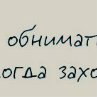 обнимат
огда захо